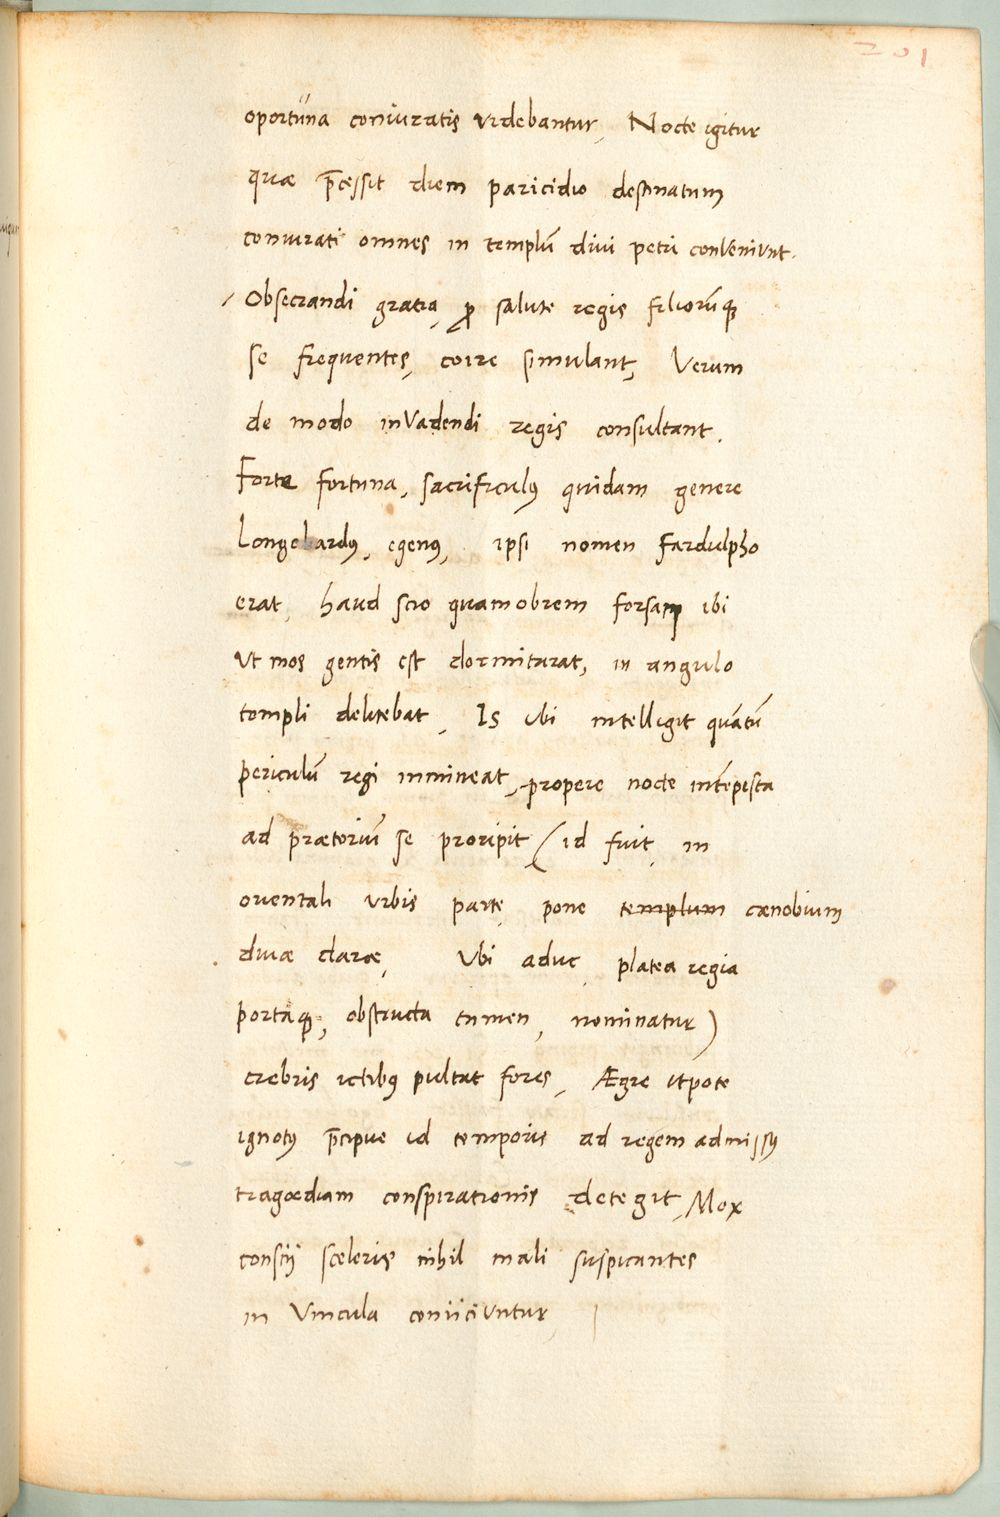 201
oportuna coniuratis videbantur, Nocte igitur
quæ p̄cessit diem paricidio destinatum
coniurati omnes in templū divi petri conveniunt.
Obsecrandi gratia, ꝓ salute regis filiorūqꝫ
se frequentes, coire simulant, Verum
de modo invadendi regis consultant.
Forte fortuna, sacrificulꝰ quidam genere
Longobardꝰ, egenꝰ, ipsi nomen Fardulpho
erat, haud scio quamobrem forsan ibi
ut mos gentis est dormiturat, in angulo
templi delitebat, Is ubi intelligit quātū
periculū regi immineat, propere nocte intēpesta
ad prætoriū se proripit (id fuit, in
orientali urbis parte, pone templum cænobium
divæ claræ, Ubi aduc, platea regia
portaqꝫ, obstructa tamen, nominatur)
crebris ictibꝰ pultat fores, Ægre utpote
ignotꝰ p̄cipue id temporis ad regem admissꝰ
tragœdiam conspirationis detegit, Mox
conscij sceleris nihil mali suspicantes
in vincula coniiciuntur,